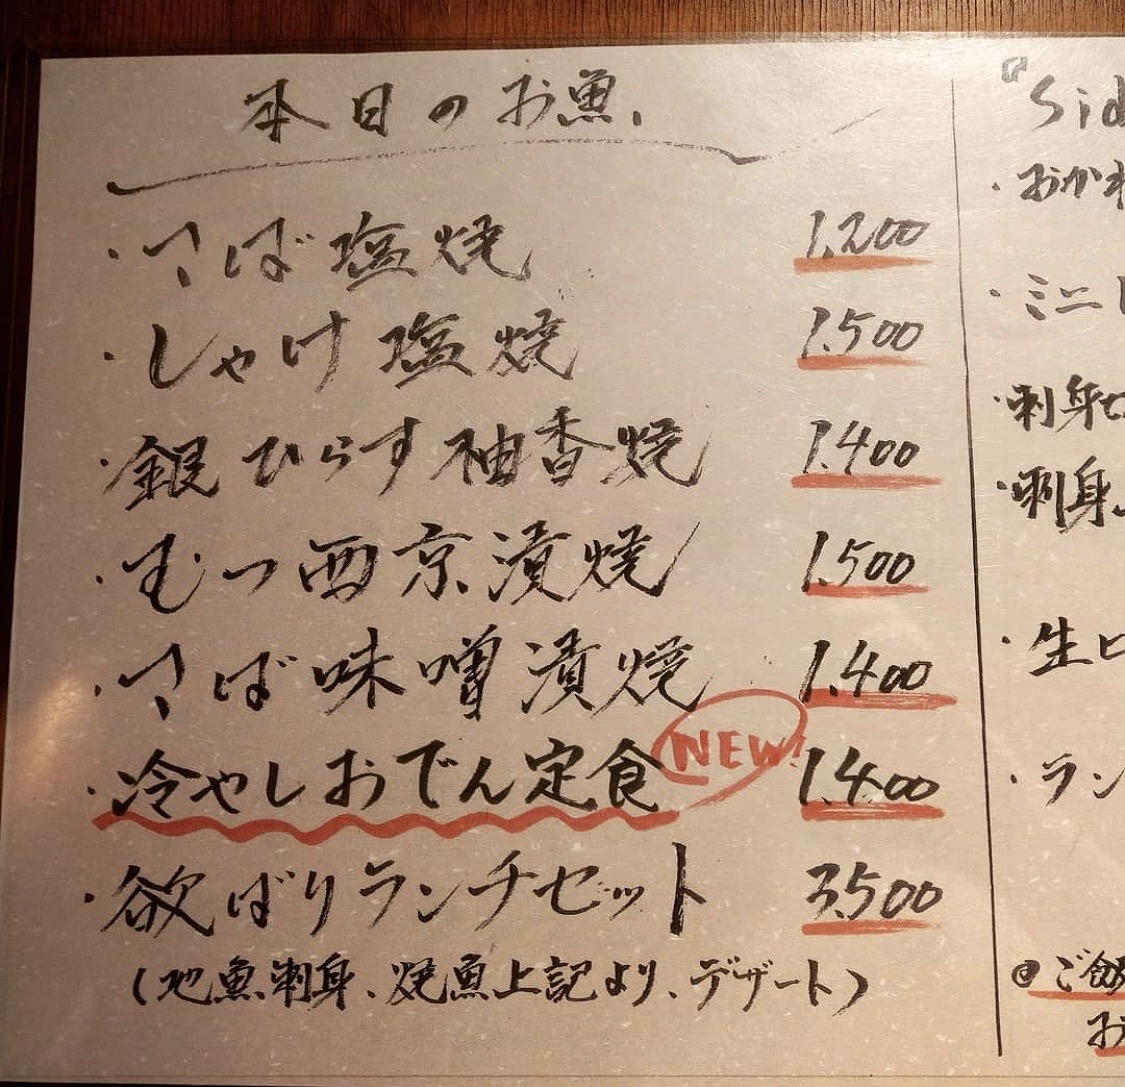 本日のお魚.
・さば塩焼 1.200
・しゃけ塩焼 1.500
・銀ひらす柚香焼 1.400
・むつ西京漬焼 1.500
・さば味噌漬焼 1.400
・冷やしおでん定食 NEW! 1.400
・欲ばりランチセット 3.500
(地魚刺身、焼魚上記より、デザート)
『Sid
・おかわ
・ミニ
・刺身
・刺身
・生ビ
・ラン
◎ご飯
お